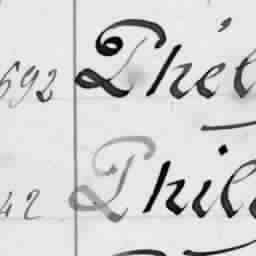 692 Phél
42 Phil